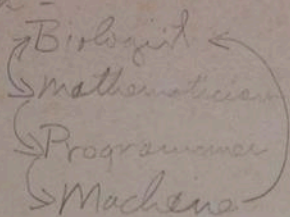 Biologist
Mathematician
Programmer
Machine